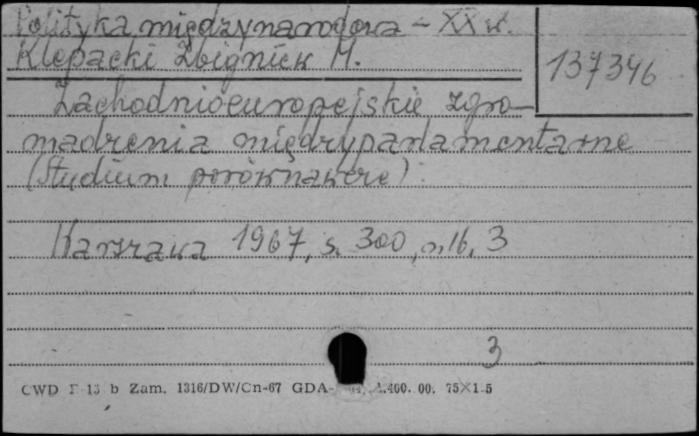 Polityka międzynarodowa – XX w.
Klepacki Zbigniew M.
137346
Zachodnioeuropejskie zgro-
madzenia międzyparlamentarne
(Studium porównawcze)
Warszawa 1967, s. 300, 3
3
CWD 13 b Zam. 1316/DW/Cn-67 GDA- 00. 75×1